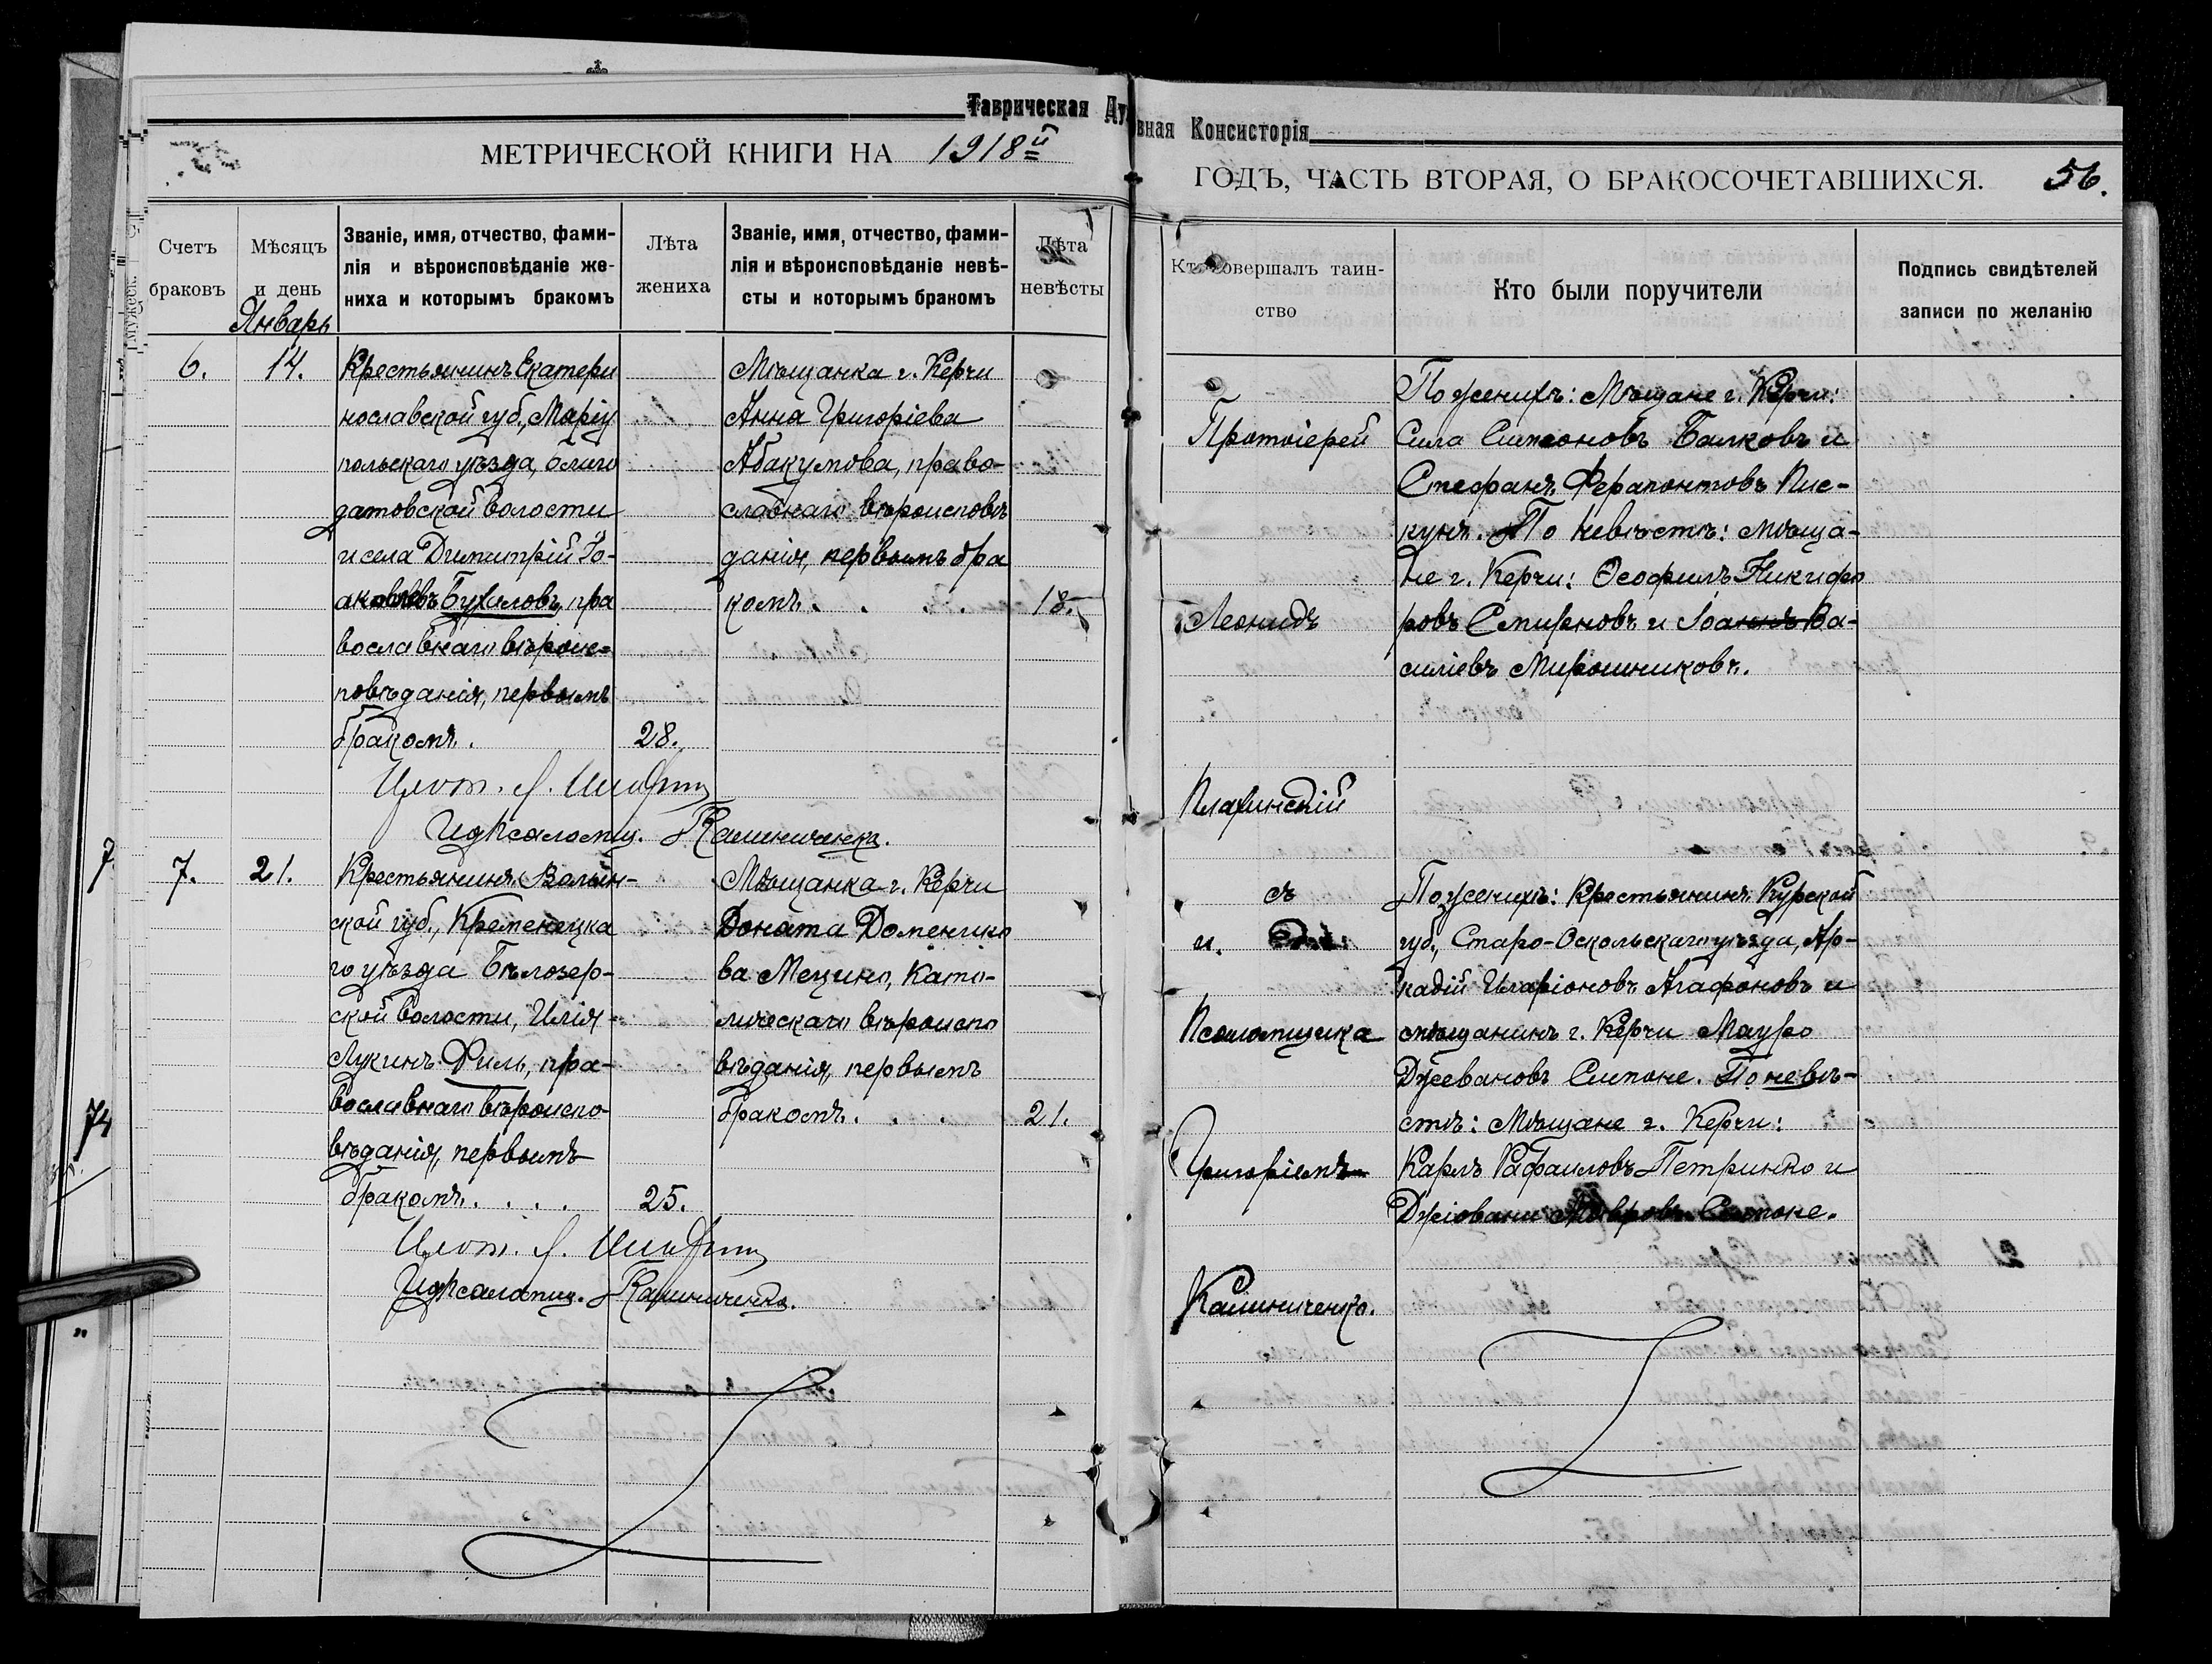 Таврическая Ду
вная Консисторія
МЕТРИЧЕСКОЙ КНИГИ НА 1918й
ГОДЪ, ЧАСТЬ ВТОРАЯ, О БРАКОСОЧЕТАВШИХСЯ. 56.
Счетъ браковъ
Мѣсяцъ и день
Январь
Званіе, имя, отчество, фами-
лія и вѣроисповѣданіе же-
ниха и которымъ бракомъ
Лѣта
жениха
Званіе, имя, отчество, фами-
лія и вѣроисповѣданіе невѣ-
сты и которымъ бракомъ
Лѣта
невѣсты
Кто совершалъ таин-
ство
Кто были поручители
Подпись свидѣтелей
записи по желанію
6. 14.
Крестьянинъ Екатери
нославской губ., Маріу
польскаго уѣзда, благо
датовской волости
и села Димитрій Іо-
аковлевъ Бухаловъ, пра
вославнаго вѣроис-
повѣданія, первымъ
бракомъ. 28.
Мѣщанка г. Керчи
Анна Григоріева
Абакумова, право-
славнаго вѣроисповѣ
данія, первымъ бра
комъ. . . . 18.
Прот. Л.
И д псаломщ. Калиниченко.
Протоіерей
Леонидъ
По женихѣ: Мѣщане г. Керчи:
Сила Симеоновъ Балковъ и
Стефанъ Ферапонтовъ Пис-
кунъ. По невѣстѣ: мѣща-
не г. Керчи: Ѳеофилъ Никифо
ровъ Смирновъ и Іоаннъ Ва-
силіевъ Мирошниковъ.
7
7. 21.
Крестьянинъ Волын-
ской губ., Кременецка
го уѣзда Бѣлозер-
ской волости, Илія
Лукинъ Филь, пра-
вославнаго вѣроиспо-
вѣданія, первымъ
бракомъ. . . . 25.
Мѣщанка г. Керчи
Доната Доменико
ва Мецино, Като-
лическаго вѣроиспо
вѣданія, первымъ
бракомъ. . . 21.
74
Прот. Л.
И д псаломщ. Калиниченко.
съ
и. д.
Псаломщика
Григоріемъ
Калиниченко.
По женихѣ: Крестьянинъ Курской
губ., Старо-Оскольскаго уѣзда, Ар-
кадій Иларіоновъ Агафоновъ и
мѣщанинъ г. Керчи Мауро
Джевановъ Симоне. По невѣ-
стѣ: Мѣщане г. Керчи:
Карлъ Рафаиловъ Петринко и
Джіовани Мавровъ Симоне.